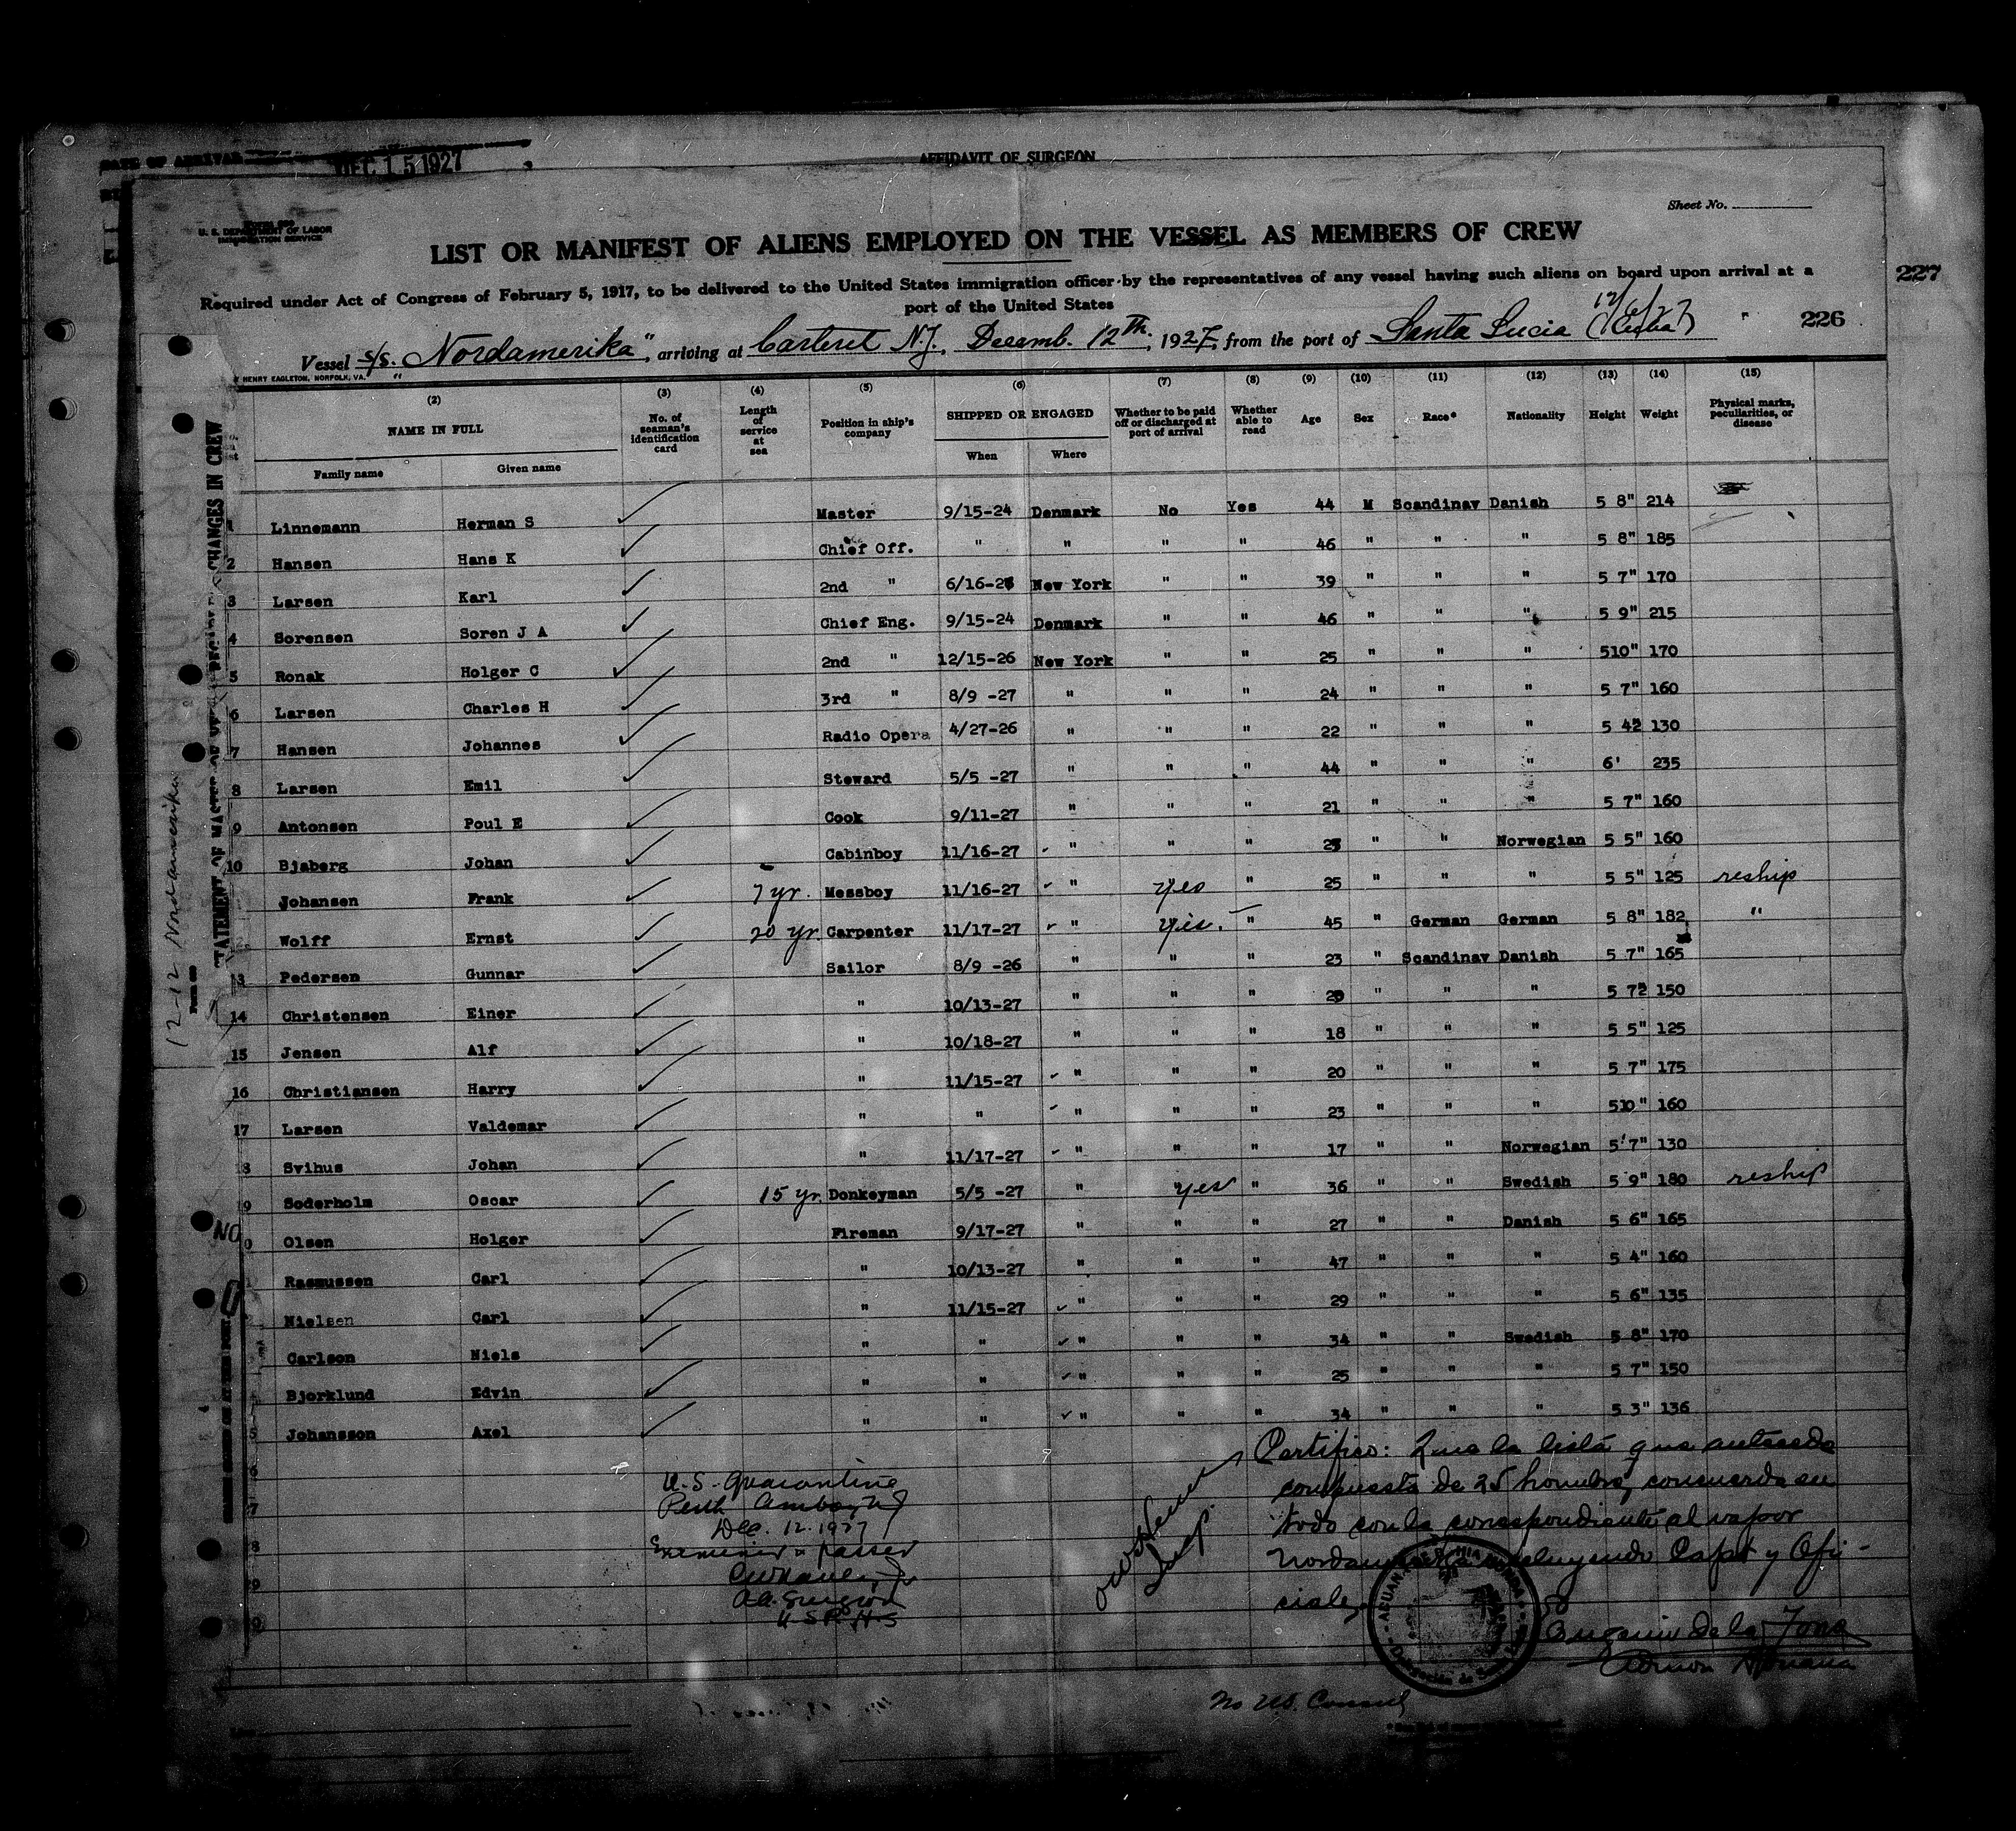 DATE OF ARRIVAL DEC 15 1927
AFFIDAVIT OF SURGEON
Sheet No.
U. S. DEPARTMENT OF LABOR
IMMIGRATION SERVICE
LIST OR MANIFEST OF ALIENS EMPLOYED ON THE VESSEL AS MEMBERS OF CREW
227
Required under Act of Congress of February 5, 1917, to be delivered to the United States immigration officer by the representatives of any vessel having such aliens on board upon arrival at a
port of the United States
226
Vessel S/S. "Nordamerika", arriving at Carteret N.J., Decemb. 12th, 1927, from the port of Santa Lucia (Cuba)
HENRY EAGLETON, NORFOLK, VA.
(2) (3) (4) (5) (6) (7) (8) (9) (10) (11) (12) (13) (14) (15)
NAME IN FULL No. of seaman's identification card Length of service at sea Position in ship's company SHIPPED OR ENGAGED Whether to be paid off or discharged at port of arrival Whether able to read Age Sex Race* Nationality Height Weight Physical marks, peculiarities, or disease
Family name Given name When Where
1 Linnemann Herman S Master 9/15-24 Denmark No Yes 44 M Scandinav Danish 5 8" 214
2 Hansen Hans K Chief Off. " " " " 46 " " " 5 8" 185
3 Larsen Karl 2nd " 6/16-26 New York " " 39 " " " 5 7" 170
4 Sorensen Soren J A Chief Eng. 9/15-24 Denmark " " 46 " " " 5 9" 215
5 Ronak Holger C 2nd " 12/15-26 New York " " 25 " " " 510" 170
6 Larsen Charles H 3rd " 8/9 -27 " " " 24 " " " 5 7" 160
7 Hansen Johannes Radio Opera 4/27-26 " " " 22 " " " 5 4½ 130
8 Larsen Emil Steward 5/5 -27 " " " 44 " " " 6' 235
9 Antonsen Poul E Cook 9/11-27 " " " 21 " " " 5 7" 160
10 Bjaberg Johan Cabinboy 11/16-27 " " " 25 " " Norwegian 5 5" 160
Johansen Frank 7 yr. Messboy 11/16-27 " yes " 25 " " " 5 5" 125 reship
12 Wolff Ernst 20 yr. Carpenter 11/17-27 " yes. " 45 " German German 5 8" 182 "
13 Pedersen Gunnar Sailor 8/9 -26 " " " 23 " Scandinav Danish 5 7" 165
14 Christensen Einer " 10/13-27 " " " 20 " " " 5 7½ 150
15 Jensen Alf " 10/18-27 " " " 18 " " " 5 5" 125
16 Christiansen Harry " 11/15-27 " " " 20 " " " 5 7" 175
17 Larsen Valdemar " " " " " 23 " " " 510" 160
18 Svihus Johan " 11/17-27 " " " 17 " " Norwegian 5'7" 130
9 Soderholm Oscar 15 yr. Donkeyman 5/5 -27 " yes " 36 " " Swedish 5 9" 180 reship
0 Olsen Holger Fireman 9/17-27 " " " 27 " " Danish 5 6" 165
1 Rasmussen Carl " 10/13-27 " " " 47 " " " 5 4" 160
2 Nielsen Carl " 11/15-27 " " " 29 " " " 5 6" 135
Carlson Niels " " " " " 34 " " Swedish 5 8" 170
Bjorklund Edvin " " " " " 25 " " " 5 7" 150
5 Johansson Axel " " " " " 34 " " " 5 3" 136
Certifico: Que la lista que antecede
compuesta de 25 hombres, concuerda en
todo con la correspondiente al vapor
Nordamerika incluyendo Capt y Ofi-
ciales
Eugenio de la
U.S. Quarantine
Perth Amboy NJ
Dec. 12. 1927
Examined & passed
A.A. Surgeon
U.S.P.H.S
No U.S. Consul
12-12 Nordamerika
NO